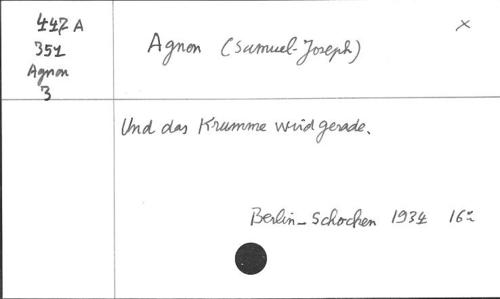 447 A
351
Agnon
3
Agnon (Samuel-Joseph)
x
Und das Krumme wird gerade.
Berlin_Schocken 1934 16°